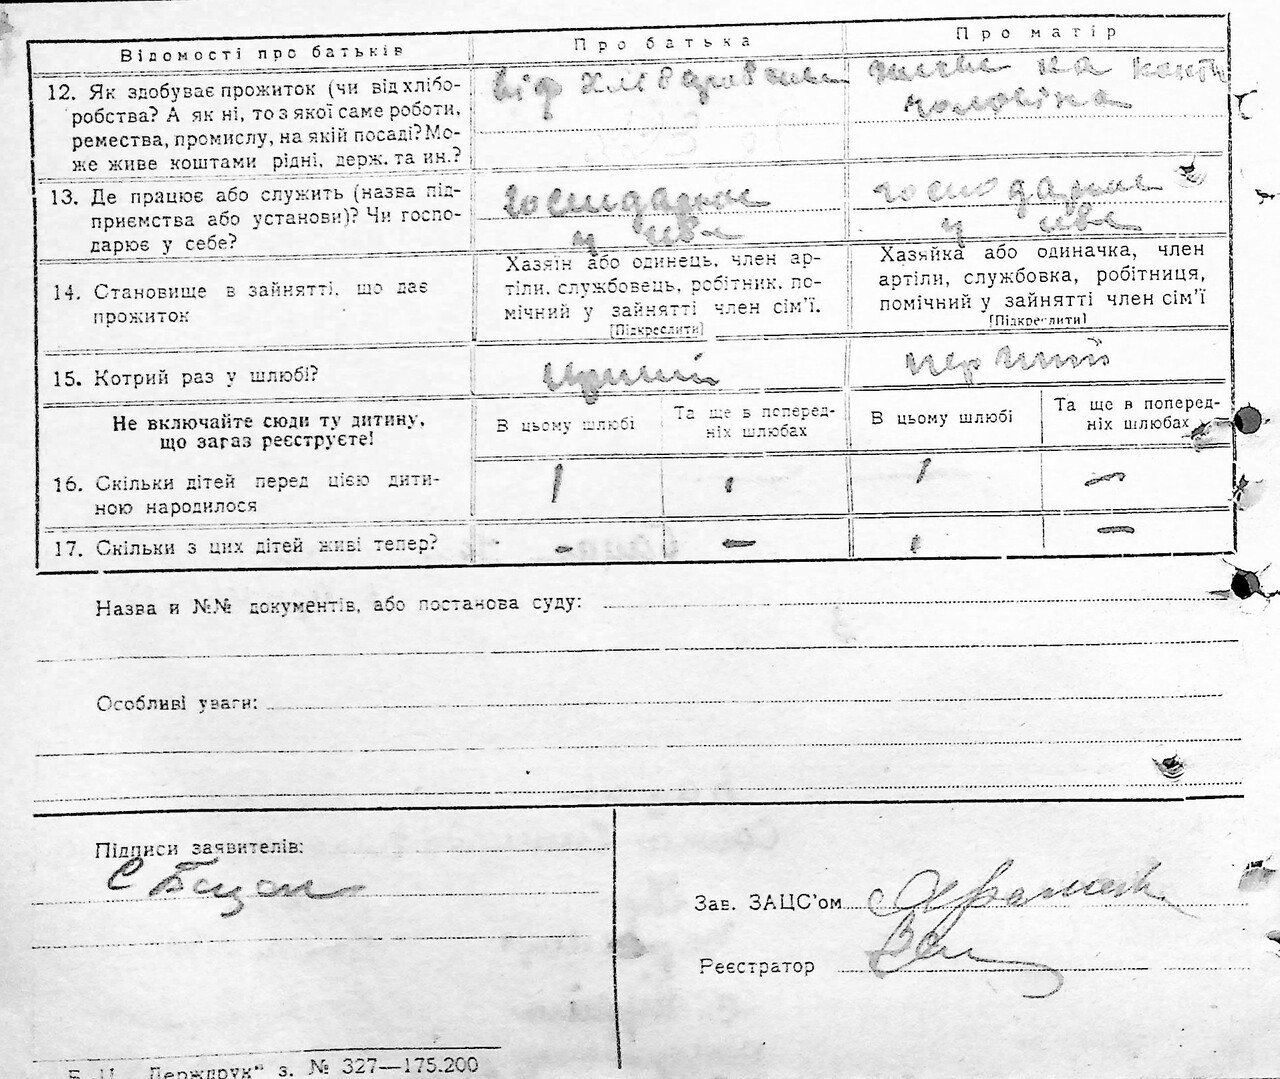 Відомості про батьків
Про батька
Про матір
12. Як здобуває прожиток (чи від хлібо-
робства? А як ні, то з якої саме роботи,
ремества, промислу, на якій посаді? Мо-
же живе коштами рідні, держ. та ин.?
від
на кошти
чоловіка
13. Де працює або служить (назва під-
приємства або установи)? Чи госпо-
дарює у себе?
господарює
у себе
господарює
у себе
14. Становище в зайнятті, що дає
прожиток
Хазяїн або одинець, член ар-
тіли, службовець, робітник, по-
мічний у зайнятті член сім’ї.
[Підкреслити]
Хазяйка або одиначка, член
артіли, службовка, робітниця,
помічний у зайнятті член сім’ї
[Підкреслити]
15. Котрий раз у шлюбі?
перший
перший
Не включайте сюди ту дитину,
що загаз реєструєте!
В цьому шлюбі
Та ще в поперед-
ніх шлюбах
В цьому шлюбі
Та ще в поперед-
ніх шлюбах
16. Скільки дітей перед цією дити-
ною народилося
1
1
—
17. Скільки з цих дітей живі тепер?
–
–
1
—
Назва и №№ документів, або постанова суду:
Особливі уваги:
Підписи заявителів:
С Бацан
Зав. ЗАЦС’ом
Реєстратор
Б. Ц. „Держдрук“ з. № 327—175.200